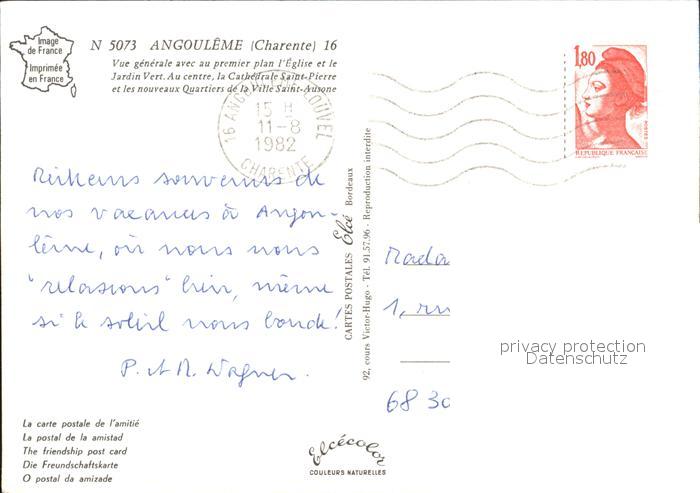 Image
de France
Imprimée
en France
N 5073 ANGOULÊME (Charente) 16
Vue générale avec au premier plan l'Église et le
Jardin Vert. Au centre, la Cathédrale Saint-Pierre
et les nouveaux Quartiers de la Ville Saint-Ausone
16 ANGOULÊME LOUVEL
15 H
11-8
1982
CHARENTE
1,80
POSTES
REPUBLIQUE FRANÇAISE
souvenirs de
nos vacances à Angou-
lême, où nous nous
"relaxions" bien, même
si le soleil nous boude!
P. et M. Wagner.
CARTES POSTALES Elcé Bordeaux
92, cours Victor-Hugo - Tél. 91.57.96 - Reproduction interdite
Mada
1, ru
68 30
privacy protection
Datenschutz
La carte postale de l'amitié
La postal de la amistad
The friendship post card
Die Freundschaftskarte
O postal da amizade
Elcécolor
COULEURS NATURELLES